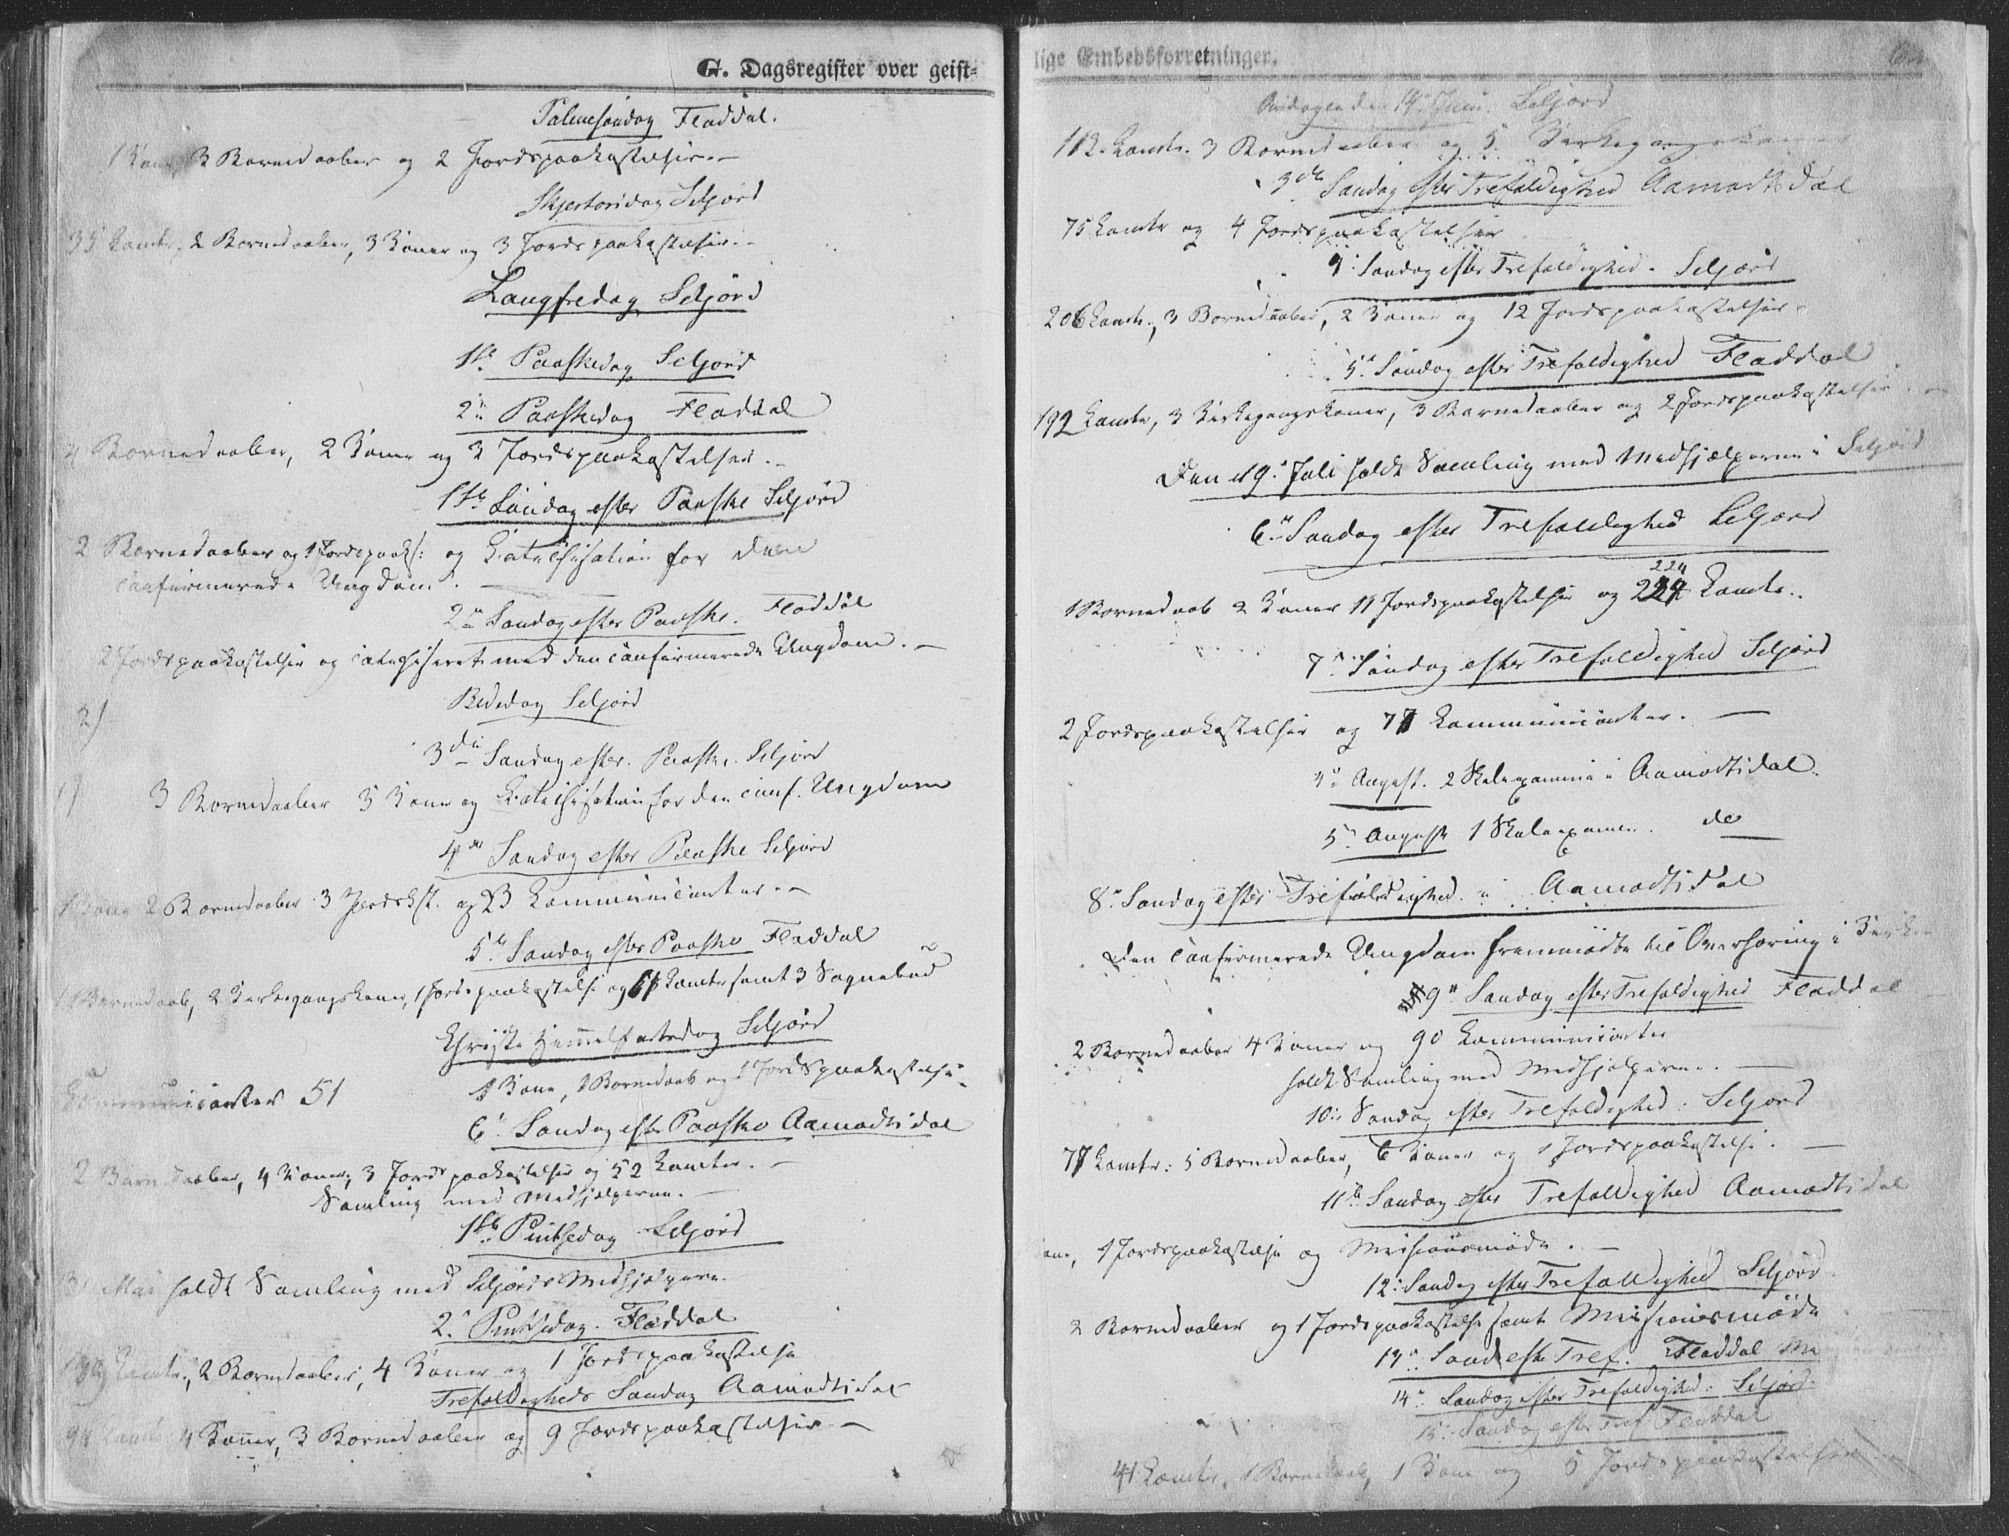 G. Dagsregister over geist-
Palmesøndag Fladdal.
1 Kone, 3 Barnedaaber og 2 Jordspaakastelser. —
Skjertorsdag Seljord
35 Comtr. 2 Barnedaaber, 3 Koner og 3 Jordspaakastelser. —
Langfredag Seljord
1ste Paaskedag Seljord
2n Paaskedag Fladdal
4 Barnedaaber, 2 Koner og 3 Jordspaakastelser. —
1ste Søndag efter Paaske Seljord
2 Barnedaaber og 1 Jordspaak: og Katechisation for den
confirmerede Ungdom. —
2n Søndag efter Paaske. Fladdal
2 Jordspaakastelser og catechiseret med den confirmerede Ungdom. —
Bededag Seljord
3die Søndag efter Paaske. Seljord
3 Barnedaaber 5 Koner og Katechisation for den conf. Ungdom
4de Søndag efter Paaske Seljord
1 Kone 2 Barnedaaber 3 Jordskst. og 23 Communicanter. —
5te Søndag efter Paaske Fladdal
1 Barnedaab, 2 Kirkegangskoner, 1 Jordspaakastelse og Comtr samt 3 Sognebud
Christi Himmelfartsdag Seljord
1 Kone, 1 Barnedaab og 1 Jordspaakastelse.
Communicanter 51
6 Søndag efter Paaske Aamodtsdal
2 Barnedaaber, 4 Koner, 3 Jordspaakastelser og 52 Comtr. —
Samling med Medhjelperne. —
1ste Pintsedag Seljord
Mai holdt Samling med Seljords Medhjelpere.
2. Pintsedag. Fladdal
Comtr., 2 Barnedaaber, 4 Koner og 1 Jordspaakastelse
Trefoldigheds Søndag Aamodtsdal
94 Comtr 4 Koner, 3 Barnedaaber og 9 Jordspaakastelser. —
lige Embedsforretninger.
Onsdagen den 14 Juni. Seljord
112 Comtr. 3 Barnedaaber og 5 Kirkegangskoner
3die Søndag efter Trefoldighed Aamodtsdal
75 Comtr og 4 Jordspaakastelser
4: Søndag efter Trefoldighed. Seljord
206 Comtr., 3 Barnedaaber, 2 Koner og 12 Jordspaakastelser.
5. Søndag efter Trefoldighed Fladdal
192 Comtr, 3 Kirkegangskoner, 3 Barnedaaber og 2 Jordspaakastelser. —
Den 19. Juli holdt Samling med Medhjælperne i Seljord
6te Søndag efter Trefoldighed Seljord
224
1 Barnedaab 2 Koner 11 Jordspaakastelser og 224 Comtr.
7n Søndag efter Trefoldighed Seljord
2 Jordspaakastelser og 77 Communicanter. —
4n August. 2 Skoleexamina i Aamodtsdal.
5n August 1 Skoleexamen. do
8n Søndag efter Trefoldighed i Aamodtsdal
Den confirmerede Ungdom fremmødte til Overhøring i Kirken
9n Søndag efter Trefoldighed Fladdal
2 Barnedaaber 4 Koner og 90 Communicanter
holdt Samling med Medhjelperne. —
10: Søndag efter Trefoldighed. Seljord
77 Comtr: 5 Barnedaaber, 6 Koner og 1 Jordspaakastelse. —
11te Søndag efter Trefoldighed Aamodtsdal
1 Jordspaakastelse og Missionsmøde. —
12: Søndag efter Trefoldighed Seljord
2 Barnedaaber og 1 Jordspaakastelse samt Missionsmøde
13n Sønd efter Tref. Fladdal
14n Søndag efter Trefoldighed. Seljord.
15: Søndag efter Tref Fladdal
41 Comtr, 1 Barnedaab, 1 Kone og 5 Jordspaakastelser